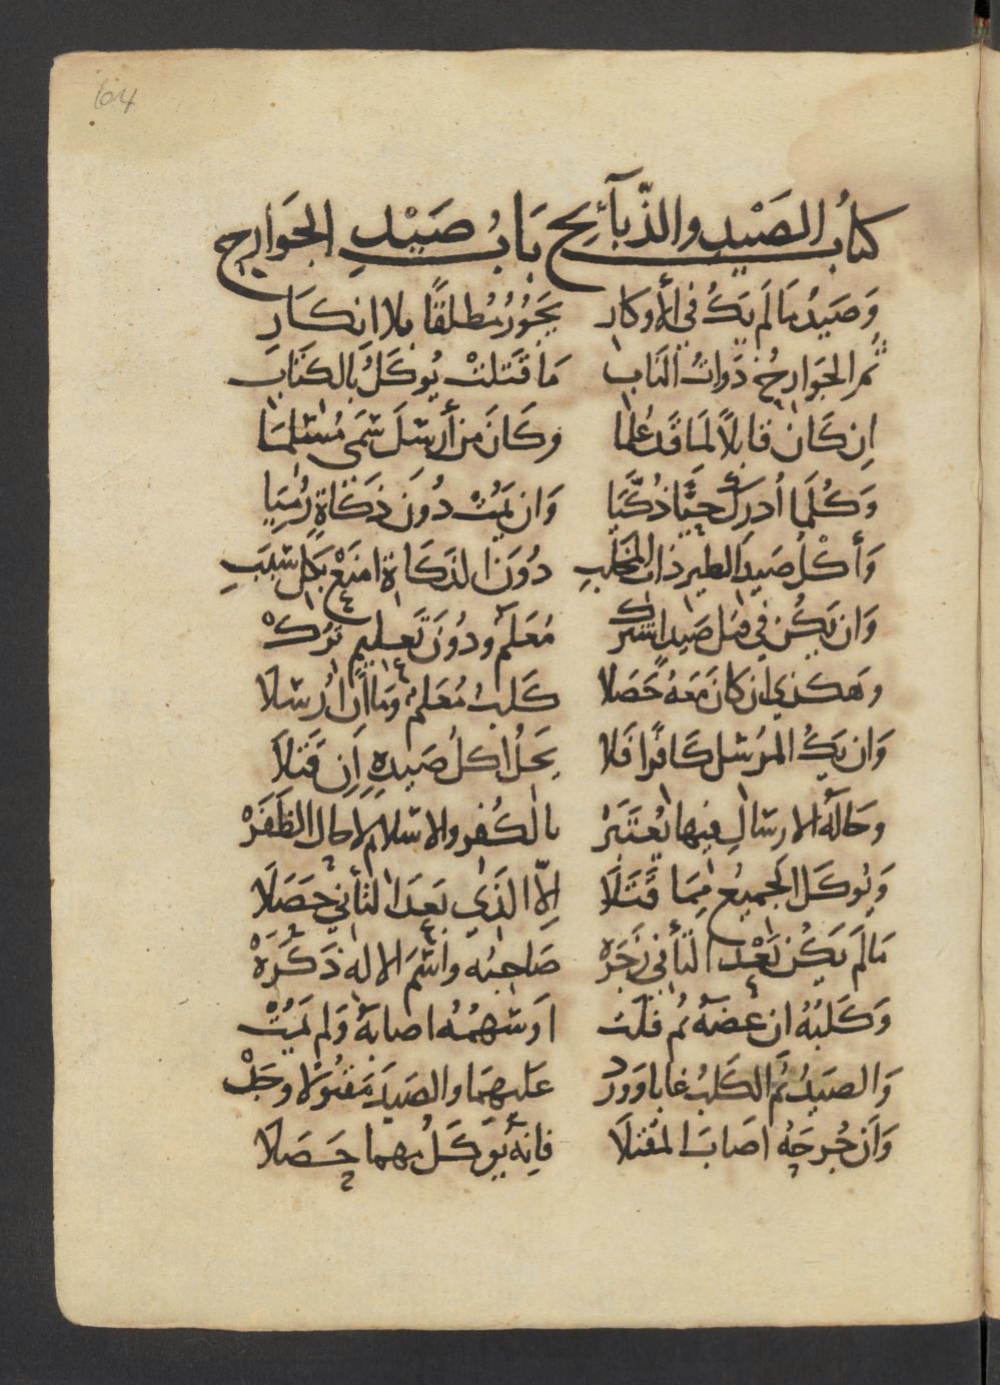 64
كتاب الصَيْدِ والذّبآئِح بَابُ صَيْدِ الجَوَارِح
وَصَيدُ مَا لَم يَكُ في الأوكار يَجُوزُ مُطلقًا بلا انكَارِ
ثُمر الجَوارحُ ذَواتُ النَاب مَا قَتَلتْ يُوكَلُ بالكتَاب
اِن كَانَ قابلاً لمَا قَد عُلما وكَانَ من أرسَلَ سَمى مُسْلمَا
وَكُلمَا أُدرك حَيًّا ذُكّيَا وَان يَمُتْ دُونَ ذَكَاةٍ رُمِيَا
وَأكْلُ صَيدِ الطير ذات المخلَبِ دُونَ الذكَاة امنَعْ بَكل سَبَبِ
وَان يَكُن في قتل صَيدٍ اشترك مُعَلم وَدُونَ تَعليمٍ تُرَكْ
وهَكذي ان كانَ مَعَهُ حَصَلا كَلبُ مُعَلم وَما ان ارُسلا
وَان يَكُ المرُسل كَافرا فَلا يَحَلُ اكلُ صَيدهِ اِن قَتلاَ
وحَالةُ الارسَالِ فيها يُعتَبَرْ بالكُفر والاسلام لا حال الظَفَرْ
وَيُوكَل الجميعُ مِمَا قَتَلاَ اِلاّ الذَي بَعدَ التأني حَصَلاَ
مَالم يَكُن بَعْدَ التأني زَجَرَه صَاحبُه واسْمَ الاله ذكَرَهْ
وَكَلبُهُ ان عَضهُ ثُم فلَت اَو سَهمُهُ اصابهُ وَلم يَمُتْ
وَالصَيدُ ثُم الكَلبُ غابا وَوَرد عليهمَا والصَيدَ مَقتُولا وجَدْ
وَان جُرحَهُ اصَابَ المقتلَا فاِنهُ يُوكَلُ مهما حَصَلاَ